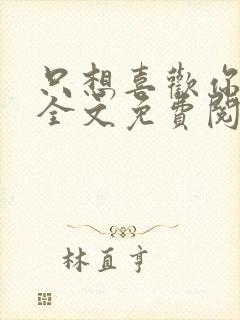 只想喜歡你
全文免費閱
林直亨